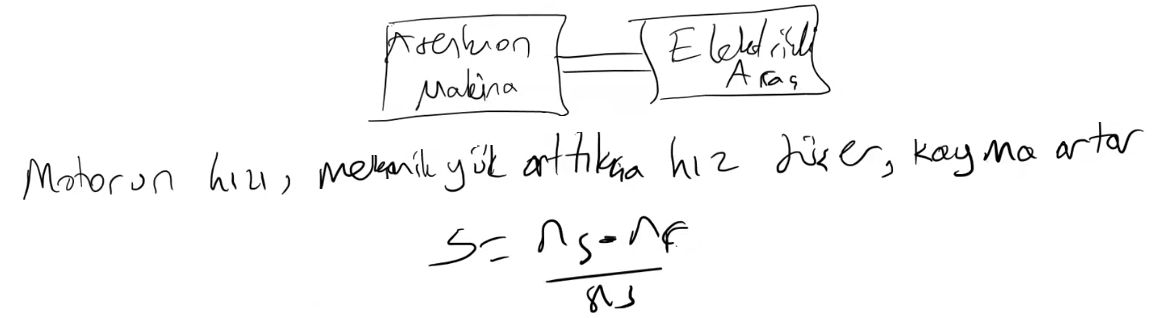 Asenkron
Makina
Elektrikli
Araç
Motorun hızı, mekanik yük arttıkça hız düşer, kayma artar
S = ns - nr
ns